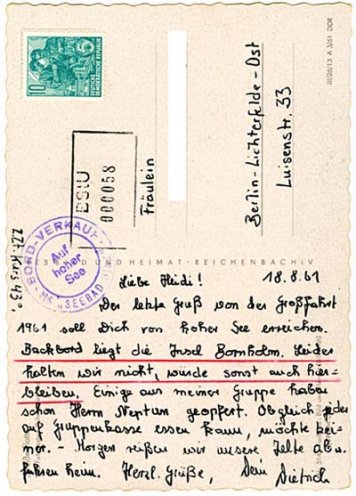 10
DEUTSCHE DEMOKRATISCHE REPUBLIK
III/26/13 A 3/61 DDR
ESIU
000058
Fräulein
Berlin-Lichterfelde-Ost
Luisenstr. 33
BORD-VERKAUF
Auf
hoher
See
MS "SEEBAD
z.Zt. Kurs 43°,
BILD UND HEIMAT REICHENBACH i V
Liebe Heidi! 18.8.61
Der letzte Gruß von der Großfahrt
1961 soll Dich von hoher See erreichen.
Backbord liegt die Insel Bornholm. Leider
halten wir nicht, würde sonst auch hier-
bleiben. Einige aus meiner Gruppe haben
schon Herrn Neptun geopfert. Obgleich jeder
auf Gruppenkasse essen kann, möchte kei-
ner. - Morgen reißen wir unsere Zelte ab u.
fahren heim. Herzl. Grüße, Dein Dietrich